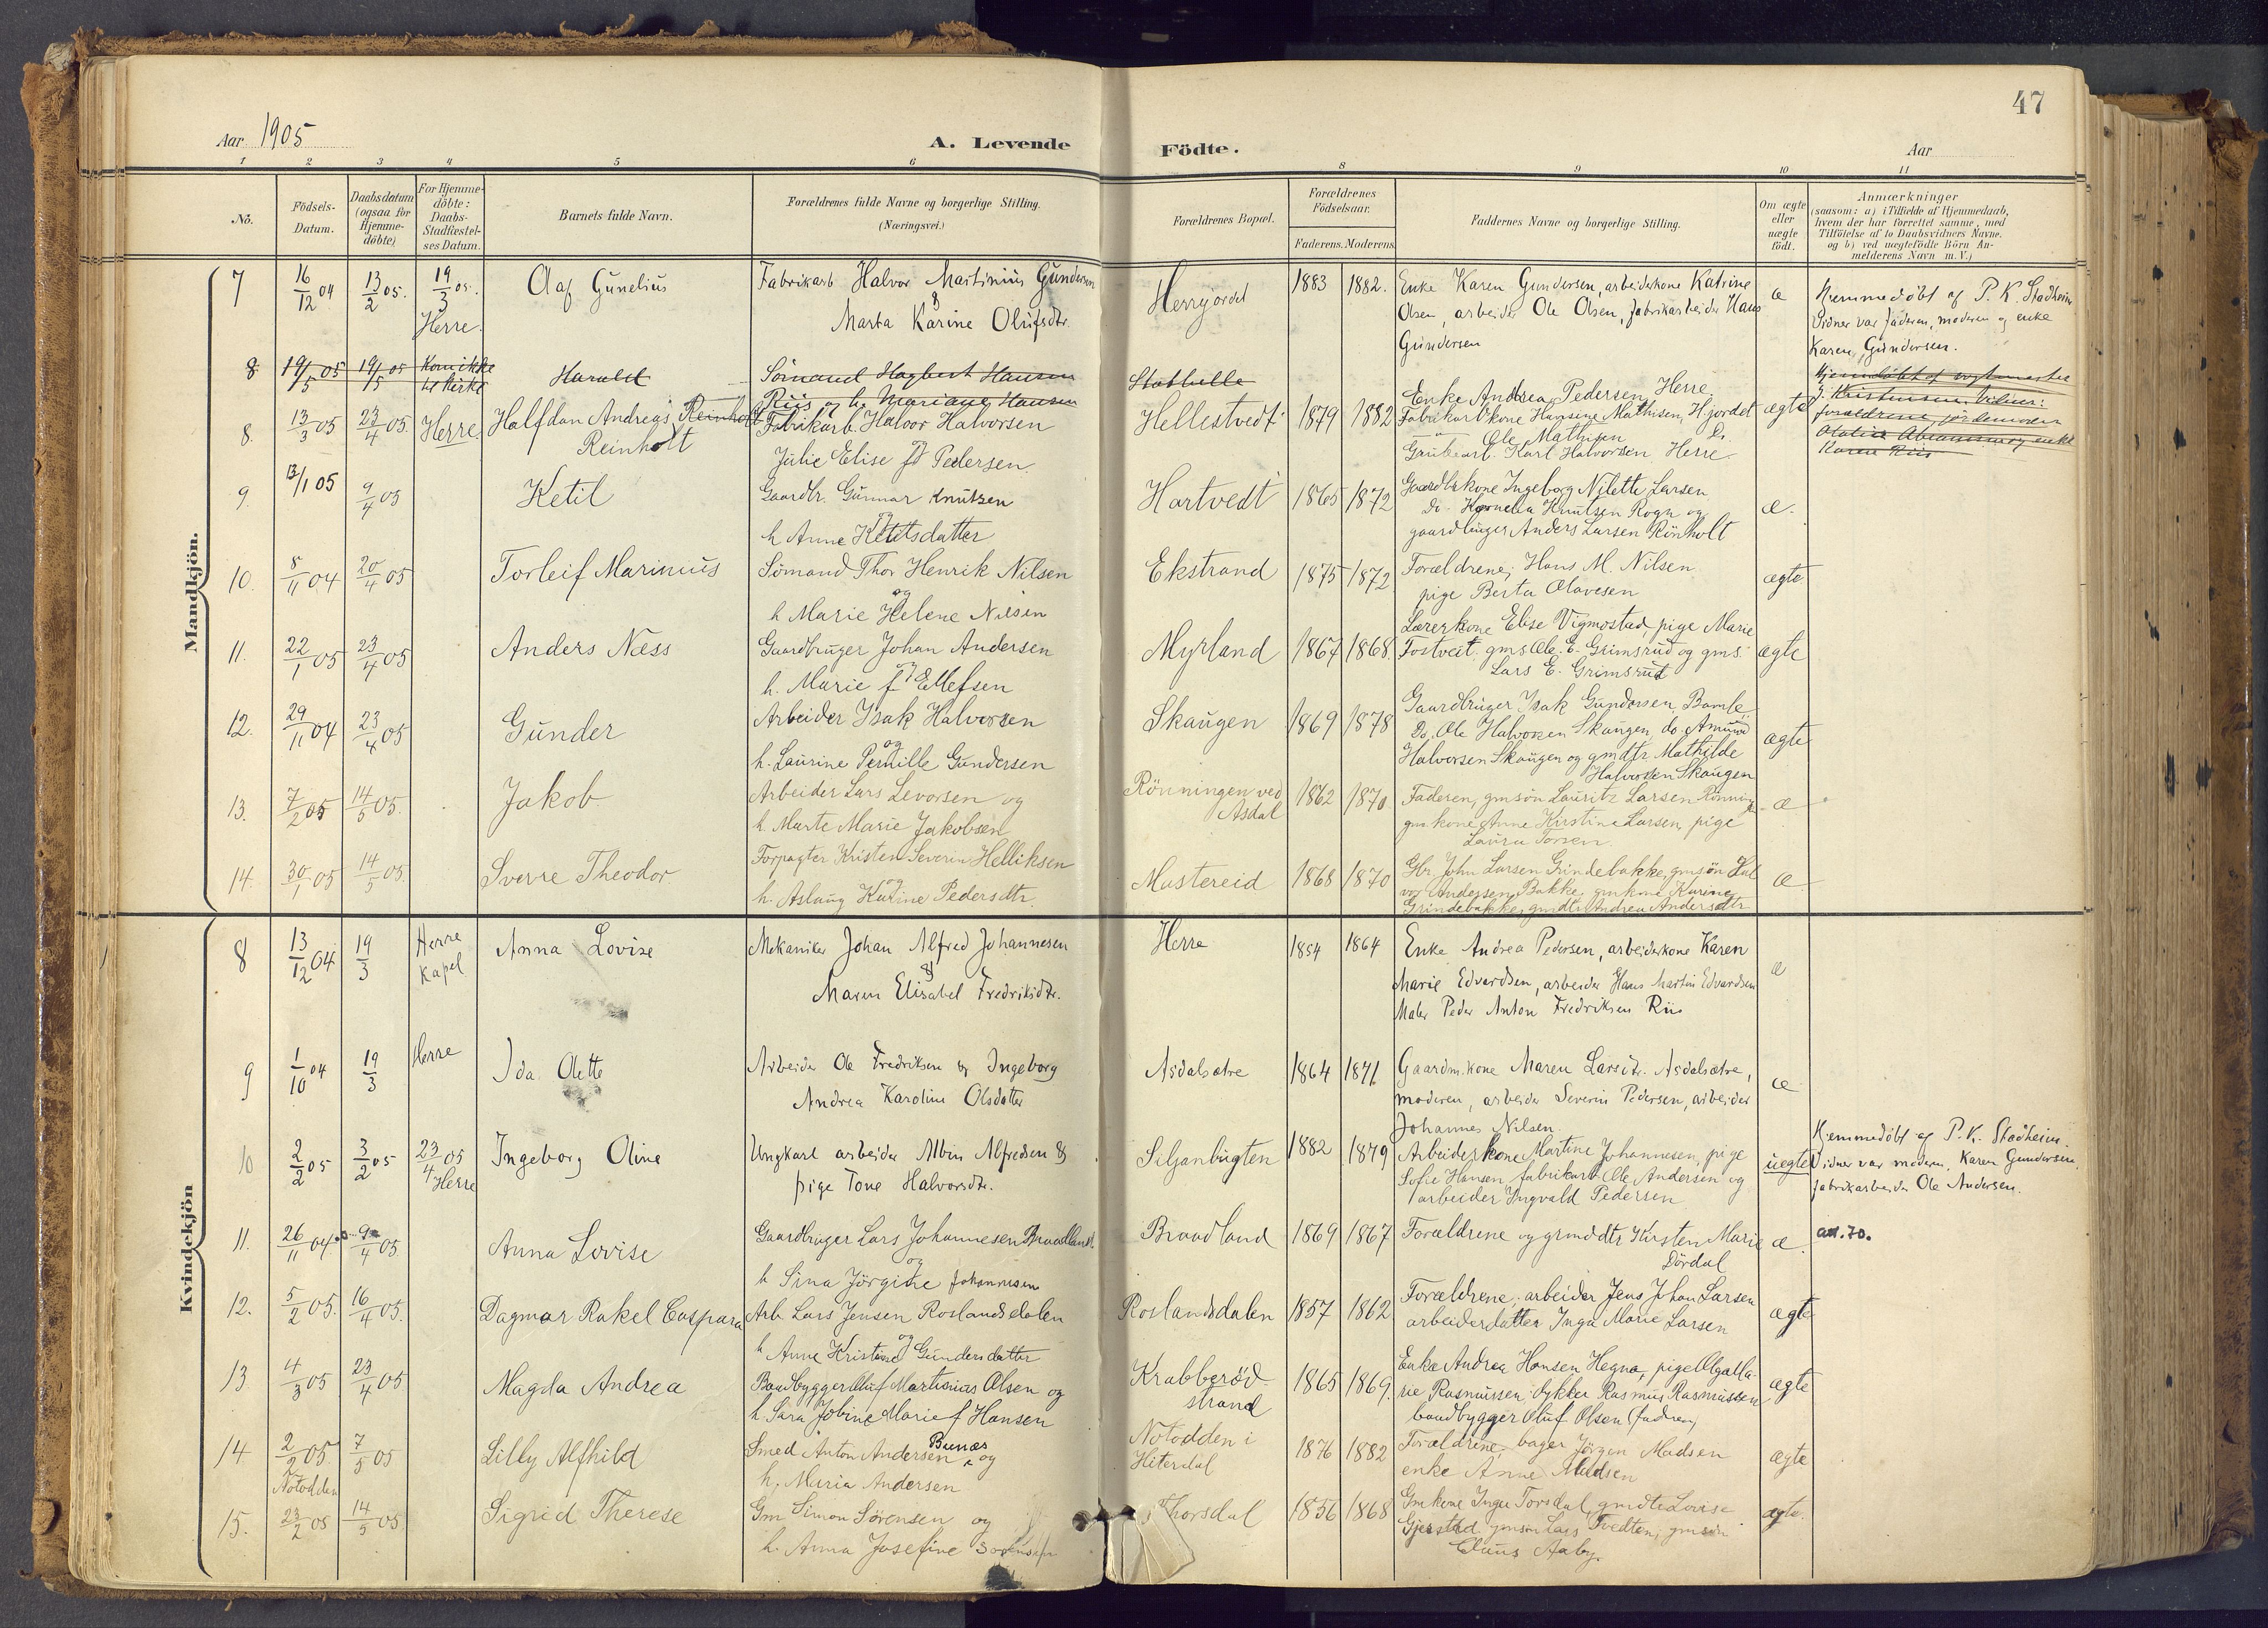 47
Aar 1905
A. Levende
Födte.
Aar
1 2 3 4 5 6 8 9 10 11
No.
Födsels-Datum.
Daabsdatum (ogsaa for Hjemme-döbte)
For Hjemme-döbte: Daabs-Stadfæstel-ses Datum.
Barnets fulde Navn.
Forældrenes fulde Navne og borgerlige Stilling.
(Næringsvei.)
Forældrenes Bopæl.
Forældrenes Födselsaar.
Faderens. Moderens.
Faddernes Navne og borgerlige Stilling.
Om ægte eller uægte födt.
Anmærkninger
(saasom: a) i Tilfælde af Hjemmedaab,
hvem der har forrettet samme, med
Tilföielse af to Daabsvidners Navne,
og b) ved uægtefödte Börn An-
melderens Navn m. V.)
Mandkjön.
7 16/12 04 13/2 05. 19/3 05. Herre. Olaf Gunelius
Fabrikarb Halvor Martinius Gundersen
&
Marta Karine Olufsdtr.
Herrejordet 1883 1882.
Enke Karen Gundersen, arbeiderkone Katrine
Olsen, arbeider Ole Olsen, fabrikarbeider Hans
Gundersen
æ
Hjemmedøbt af P. K. Stadheim
Vidner var faderen, moderen og enke
Karen Gundersen.
8 19/5 05 19/5 05 Kom ikke til kirke Harald
Sömand Hagbert Hansen
Riis og h. Mariane Hansen
Stathelle
Hjemdöbt af
J. Kristensen. Vidner:
forældrene jordemoder
Abrahamsen og enke
Karen Riis
8. 13/3 05 23/4 05. Herre. Halfdan Andreas Reinholt
Reinholt
Fabrikarb. Halvor Halvorsen
og
Julie Elise f. Pedersen
Hellestvedt 1879 1882
Enke Andrea Pedersen, Herre
Fabrikarb.kone Hansine Mathisen, Hjordet
Ole Mathisen Do
Grubearb. Karl Halvorsen Herre
ægte
9. 13/1 05 9/4 05 Ketil
Gaardbr. Gunnar Knutsen
og
h Anne Ketilsdatter
Hartvedt 1865 1872
Gaardbrkone Ingeborg Nilette Larsen
Do. Kornelia Knutsen Rogn og
gaardbruger Anders Larsen Rönholt
æ.
10. 5/11 04 20/4 05 Torleif Marinius
Sömand Thor Henrik Nilsen
og
h Marie Helene Nilsen
Ekstrand 1875 1872
Forældrene, Hans M. Nilsen
pige Berta Olavesen
ægte
11. 22/1 05 23/4 05 Anders Næss
Gaardbruger Johan Andersen
og
h. Marie f Ellefsen
Myrland 1867 1868
Lærerkone Elise Vigmostad, pige Marie
Tostvedt gms Ole. E. Grimsrud og gms.
Lars E. Grimsrud
ægte
12. 29/11 04 23/4 05 Gunder
Arbeider Isak Halvorsen
og
h. Laurine Pernille Gundersen
Skaugen 1869 1878
Gaardbruger Isak Gundersen, Bamle
Do. Ole Halvorsen Skaugen, do Amund
Halvorsen Skaugen og gmdtr Mathilde
Halvorsen Skaugen
ægte
13. 7/2 05 14/5 05. Jakob
Arbeider Lars Levorsen og
h. Marte Marie Jakobsen
Rönningen ved Asdal 1862 1870
Faderen, gmsön Lauritz Larsen Rönning
gmkone Anne Kirstine Larsen, pige
Laura Torsen.
æ
14. 30/1 05 14/5 05. Sverre Theodor
Forpagter Kristen Severin Helliksen
og
h. Aslaug Karine Pedersdtr.
Mustereid 1868 1870
Gbr. John Larsen Grindebakke, gmsön Hal
vor Andersen Bakke, gmkone Karine
Grindebakke, gmdtr. Andrea Andersdtr
æ
Kvindekjön
8 13/12 04 19/3 Herre Kapel Anna Lovise
Mekaniker Johan Alfred Johannesen
&
Maren Elisabet Fredriksdtr.
Herre 1854 1864
Enke Andrea Pedersen, arbeiderkone Karen
Marie Edvardsen, arbeider Hans Martin Edvardsen
Maler Peder Anton Fredriksen Riis
æ
9 1/10 04 19/3 Herre Ida Olette
Arbeider Ole Fredriksen og Ingeborg
Andrea Karoline Olsdatter
Asdalsætre 1864 1871
Gaardm.kone Maren Larsdtr. Asdalsætre,
moderen, arbeider Severin Pedersen, arbeider
Johannes Nilsen.
æ
10 2/2 05 3/2 05 23/4 05 Herre Ingeborg Oline
Ungkarl arbeider Albin Alfredsen &
pige Tone Halvorsdtr.
Siljanbugten 1882 1879
Arbeiderkone Martine Johannesen, pige
Sofie Hansen fabrikarb. Ole Andersen og
arbeider Ingvald Pedersen
uægte
Hjemmedöbt af P. K. Stadheim.
Vidner var moderen, Karen Gundersen,
fabrikarbeider Ole Andersen.
11. 26/11 04 9/4 05 Anna Lovise
Gaardbruger Lars Johannesen Braadland.
og
h Sina Jörgine Johannesen
Braadland 1869 1867
Forældrene og grmddtr Kirsten Marie
Dördal
æ.
12. 5/2 05. 16/4 05. Dagmar Rakel Caspara
Arb. Lars Jensen Roslandsdalen
og
h Anne Kristine Gundersdatter
Roslandsdalen 1857 1862
Forældrene, arbeider Jens Johan Larsen
arbeiderdatter Inga Marie Larsen
ægte
13. 4/3 05 23/4 05 Magda Andrea
Baadbygger Oluf Martinius Olsen og
h. Sara Jobine Marie f Hansen
Krabberöd-strand 1865 1869.
Enke Andrea Hansen Hegna, pige Olga Ma-
rie Rasmussen dykker Rasmus Rasmussen
baadbygger Oluf Olsen (faderen)
ægte
14 2/2 05. Notodden 7/5 05 Lilly Alfhild
Smed Anton Andersen Bunæs og
h. Maria Andersen
Notodden i Hiterdal 1876 1882
Forældrene, bager Jörgen Madsen
enke Anne Madsen
ægte
15. 23/2 05 14/5 05 Sigrid Therese
Gm Simon Sörensen og
h. Anna Josefine Sörensen
Thorsdal 1856 1868
Gmkone Inga Torsdal, gmdtr Lovise
Gjerstad gmsön Lars Tvedten, gmsön
Claus Aaby.
ægte.